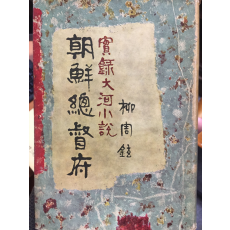 朝鮮總督府
實録大河小說
柳周鉉